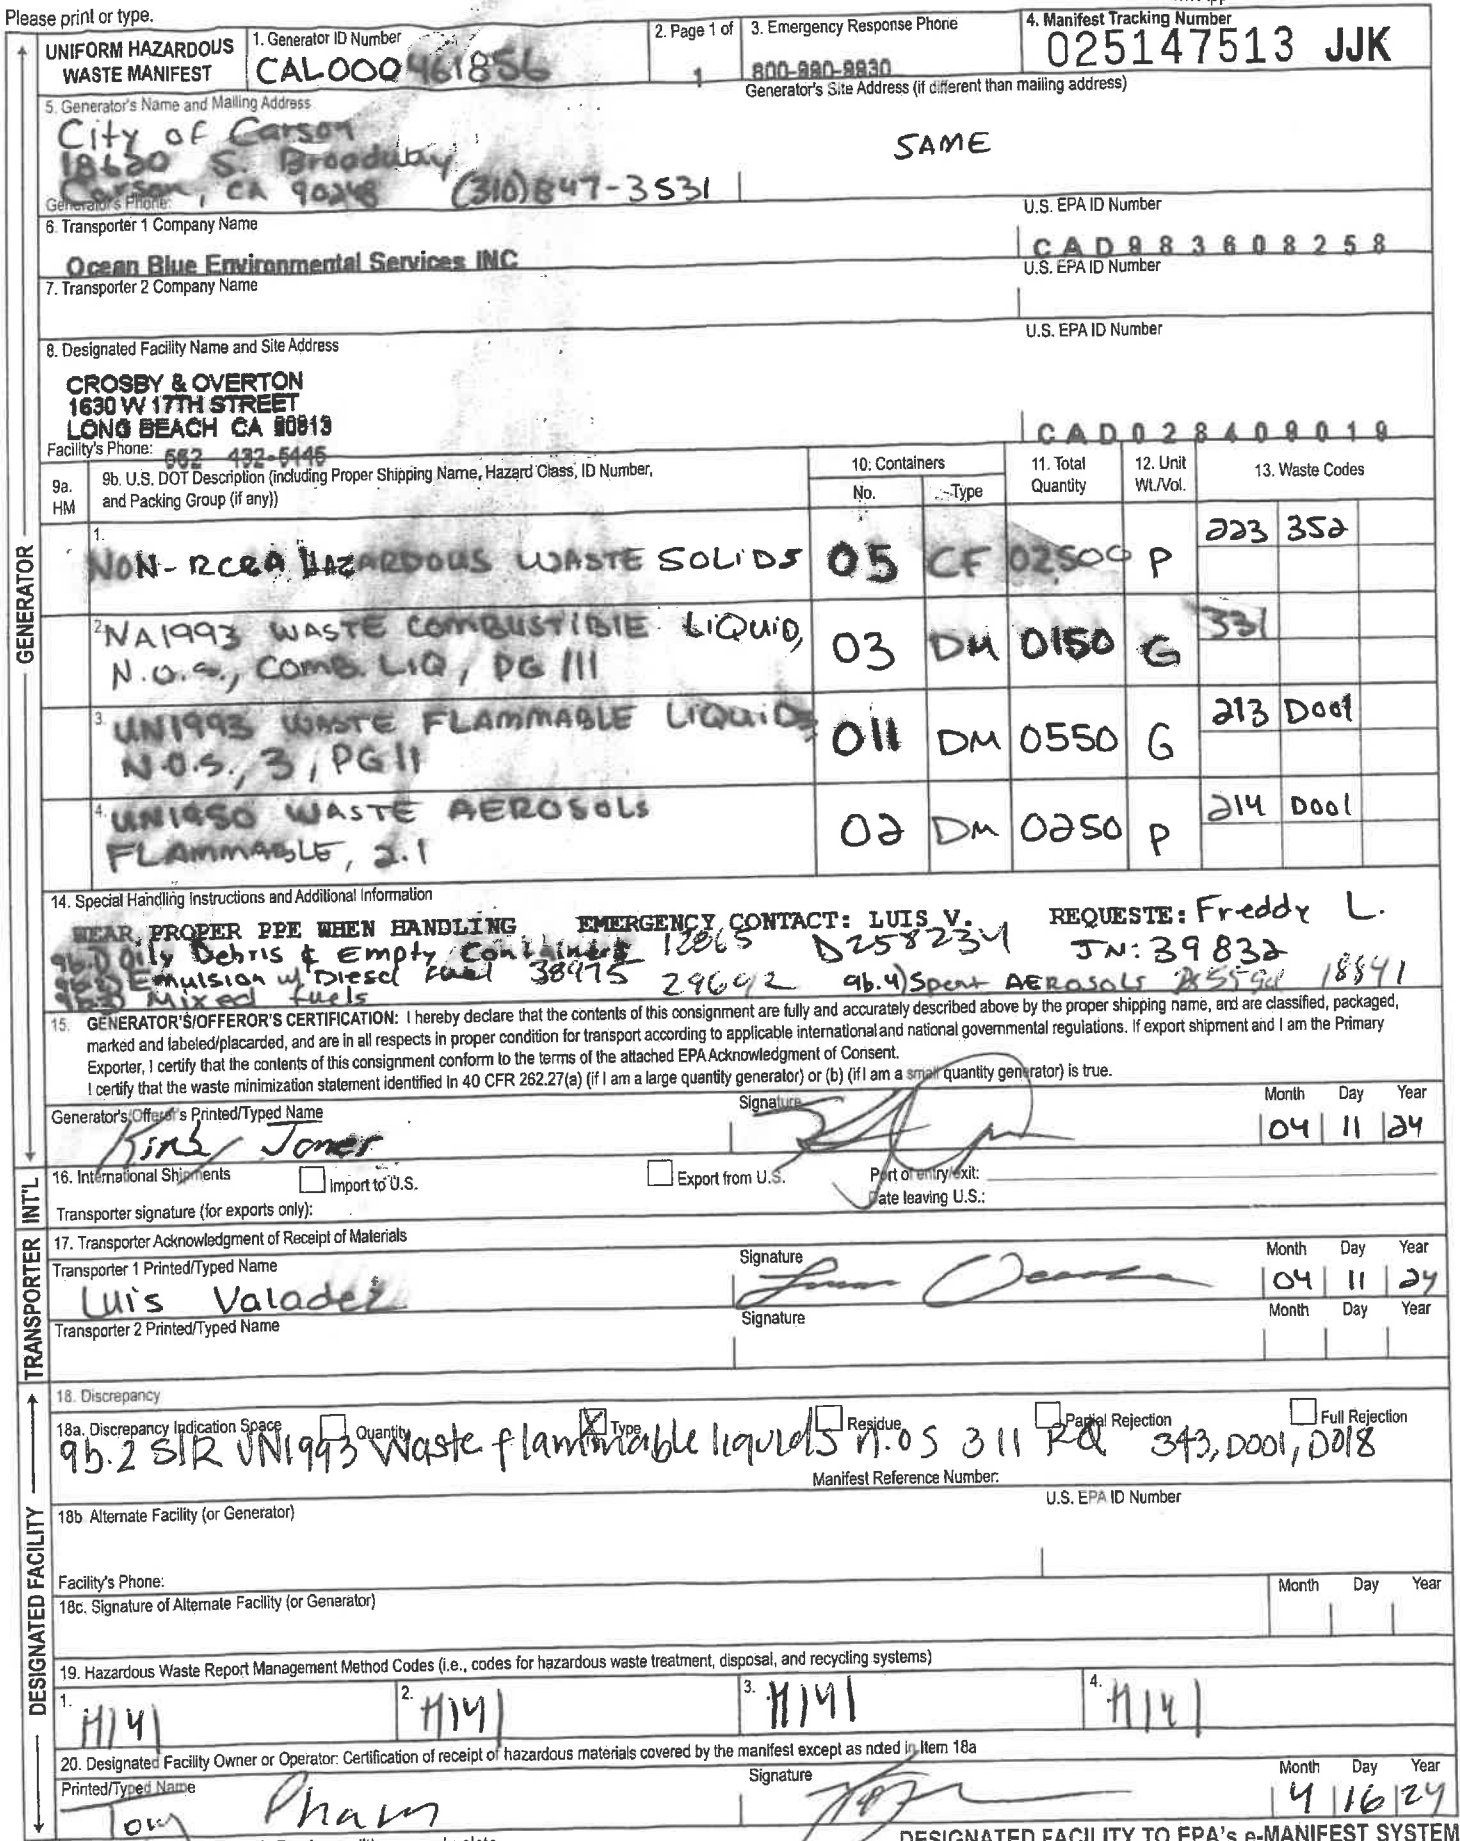 Please print or type.
UNIFORM HAZARDOUS WASTE MANIFEST
1. Generator ID Number
CAL000461856
2. Page 1 of
1
3. Emergency Response Phone
800-990-9930
4. Manifest Tracking Number
025147513 JJK
5. Generator's Name and Mailing Address
Generator's Site Address (if different than mailing address)
City of Carson
18620 S. Broadway
Carson, CA 90248 (310)847-3531
SAME
Generator's Phone:
6. Transporter 1 Company Name
U.S. EPA ID Number
Ocean Blue Environmental Services INC
CAD983608258
7. Transporter 2 Company Name
U.S. EPA ID Number
8. Designated Facility Name and Site Address
U.S. EPA ID Number
CROSBY & OVERTON
1630 W 17TH STREET
LONG BEACH CA 90813
Facility's Phone: 562 432-5445
CAD028409019
9a. HM
9b. U.S. DOT Description (including Proper Shipping Name, Hazard Class, ID Number, and Packing Group (if any))
10. Containers
No.
Type
11. Total Quantity
12. Unit Wt./Vol.
13. Waste Codes
GENERATOR
1. NON-RCRA HAZARDOUS WASTE SOLIDS 05 CF 02500 P 223 352
2. NA1993 WASTE COMBUSTIBLE LIQUID, 03 DM 0150 G 331
N.O.S., COMB LIQ, PG III
3. UN1993 WASTE FLAMMABLE LIQUIDS 011 DM 0550 G 213 D001
N.O.S., 3, PG II
4. UN1950 WASTE AEROSOLS 02 DM 0250 P 214 D001
FLAMMABLE, 2.1
14. Special Handling Instructions and Additional Information
WEAR PROPER PPE WHEN HANDLING EMERGENCY CONTACT: LUIS V. REQUESTE: Freddy L.
9b.1) Oily Debris & Empty Containers 12865 D258234 JN: 39832
9b.2) Emulsion w/ Diesel Fuel 38975 29692 9b.4) Spent AEROSOLS 18841
9b.3) Mixed fuels
15. GENERATOR'S/OFFEROR'S CERTIFICATION: I hereby declare that the contents of this consignment are fully and accurately described above by the proper shipping name, and are classified, packaged,
marked and labeled/placarded, and are in all respects in proper condition for transport according to applicable international and national governmental regulations. If export shipment and I am the Primary
Exporter, I certify that the contents of this consignment conform to the terms of the attached EPA Acknowledgment of Consent.
I certify that the waste minimization statement identified in 40 CFR 262.27(a) (if I am a large quantity generator) or (b) (if I am a small quantity generator) is true.
Generator's/Offeror's Printed/Typed Name
Signature
Month Day Year
04 11 24
16. International Shipments
Import to U.S.
Export from U.S.
Port of entry/exit:
Transporter signature (for exports only):
Date leaving U.S.:
INT'L
17. Transporter Acknowledgment of Receipt of Materials
Transporter 1 Printed/Typed Name
Signature
Month Day Year
Luis Valadez
04 11 24
Transporter 2 Printed/Typed Name
Signature
Month Day Year
TRANSPORTER
18. Discrepancy
18a. Discrepancy Indication Space
Quantity
X Type
Residue
Partial Rejection
Full Rejection
9b.2 S/R UN1993 Waste flammable liquids n.o s 3 II RQ 343, D001, D018
Manifest Reference Number:
18b. Alternate Facility (or Generator)
U.S. EPA ID Number
Facility's Phone:
18c. Signature of Alternate Facility (or Generator)
Month Day Year
DESIGNATED FACILITY
19. Hazardous Waste Report Management Method Codes (i.e., codes for hazardous waste treatment, disposal, and recycling systems)
1. H141
2. H141
3. H141
4. H141
20. Designated Facility Owner or Operator: Certification of receipt of hazardous materials covered by the manifest except as noted in Item 18a
Printed/Typed Name
Signature
Month Day Year
Tony Pham
4 16 24
DESIGNATED FACILITY TO EPA's e-MANIFEST SYSTEM